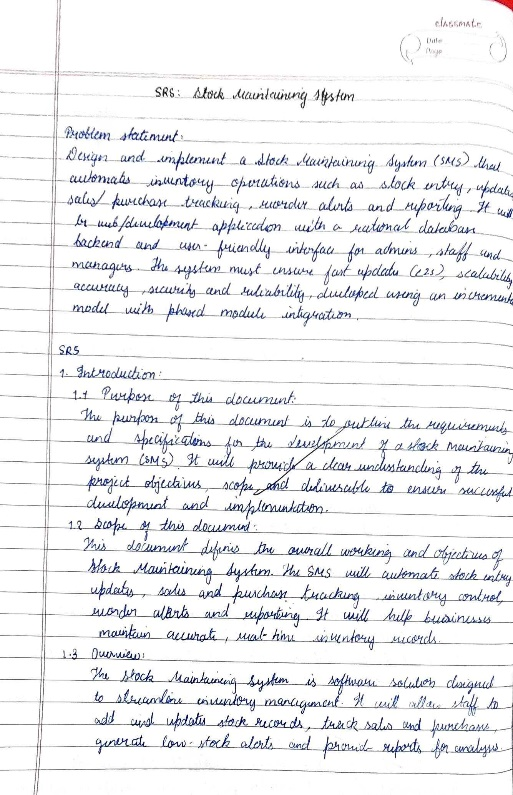 classmate
Date
Page
SRS: Stock Maintaining System
Problem statement:
Design and implement a Stock Maintaining System (SMS) that
automates inventory operations such as stock entry, updates
sales/purchase tracking, reorder alerts and reporting. It will
be web/development application with a rational database
backend and user-friendly interface for admins, staff and
managers. The system must ensure fast update (<2s), scalability
accuracy, security and reliability, developed using an increment
model with phased module integration.
SRS
1. Introduction:
1.1 Purpose of this document:
The purpose of this document is to outline the requirements
and specifications for the development of a stock maintaining
system (SMS). It will provide a clear understanding of the
project objectives, scope, and deliverable to ensure successful
development and implementation.
1.2 Scope of this document:
This document defines the overall working and objectives of
Stock Maintaining System. The SMS will automate stock entry
updates, sales and purchase tracking, inventory control,
reorder alerts and reporting. It will help businesses
maintain accurate, real-time inventory records.
1.3 Overview:
The Stock Maintaining System is software solution designed
to streamline inventory management. It will allow staff to
add and update stock records, track sales and purchase,
generate low-stock alerts and provide reports for analysis